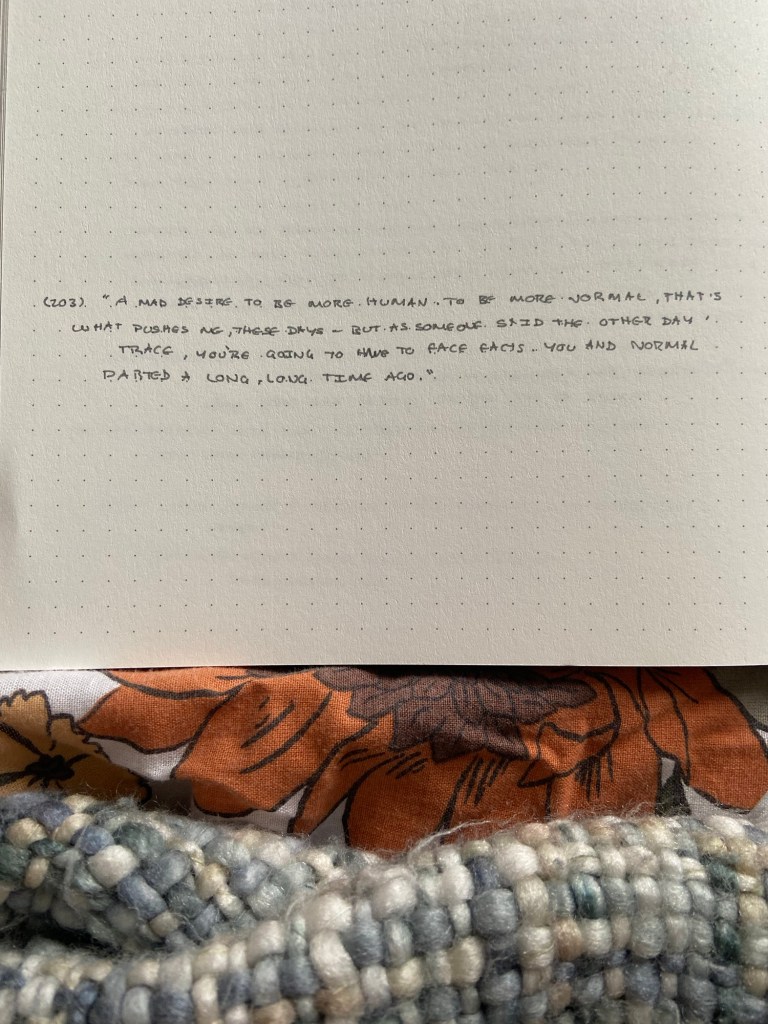 (203). "A MAD DESIRE TO BE MORE HUMAN. TO BE MORE NORMAL, THAT'S
WHAT PUSHES ME, THESE DAYS – BUT AS SOMEONE SAID THE OTHER DAY '
TRACE, YOU'RE GOING TO HAVE TO FACE FACTS.. YOU AND NORMAL
PARTED A LONG, LONG TIME AGO."